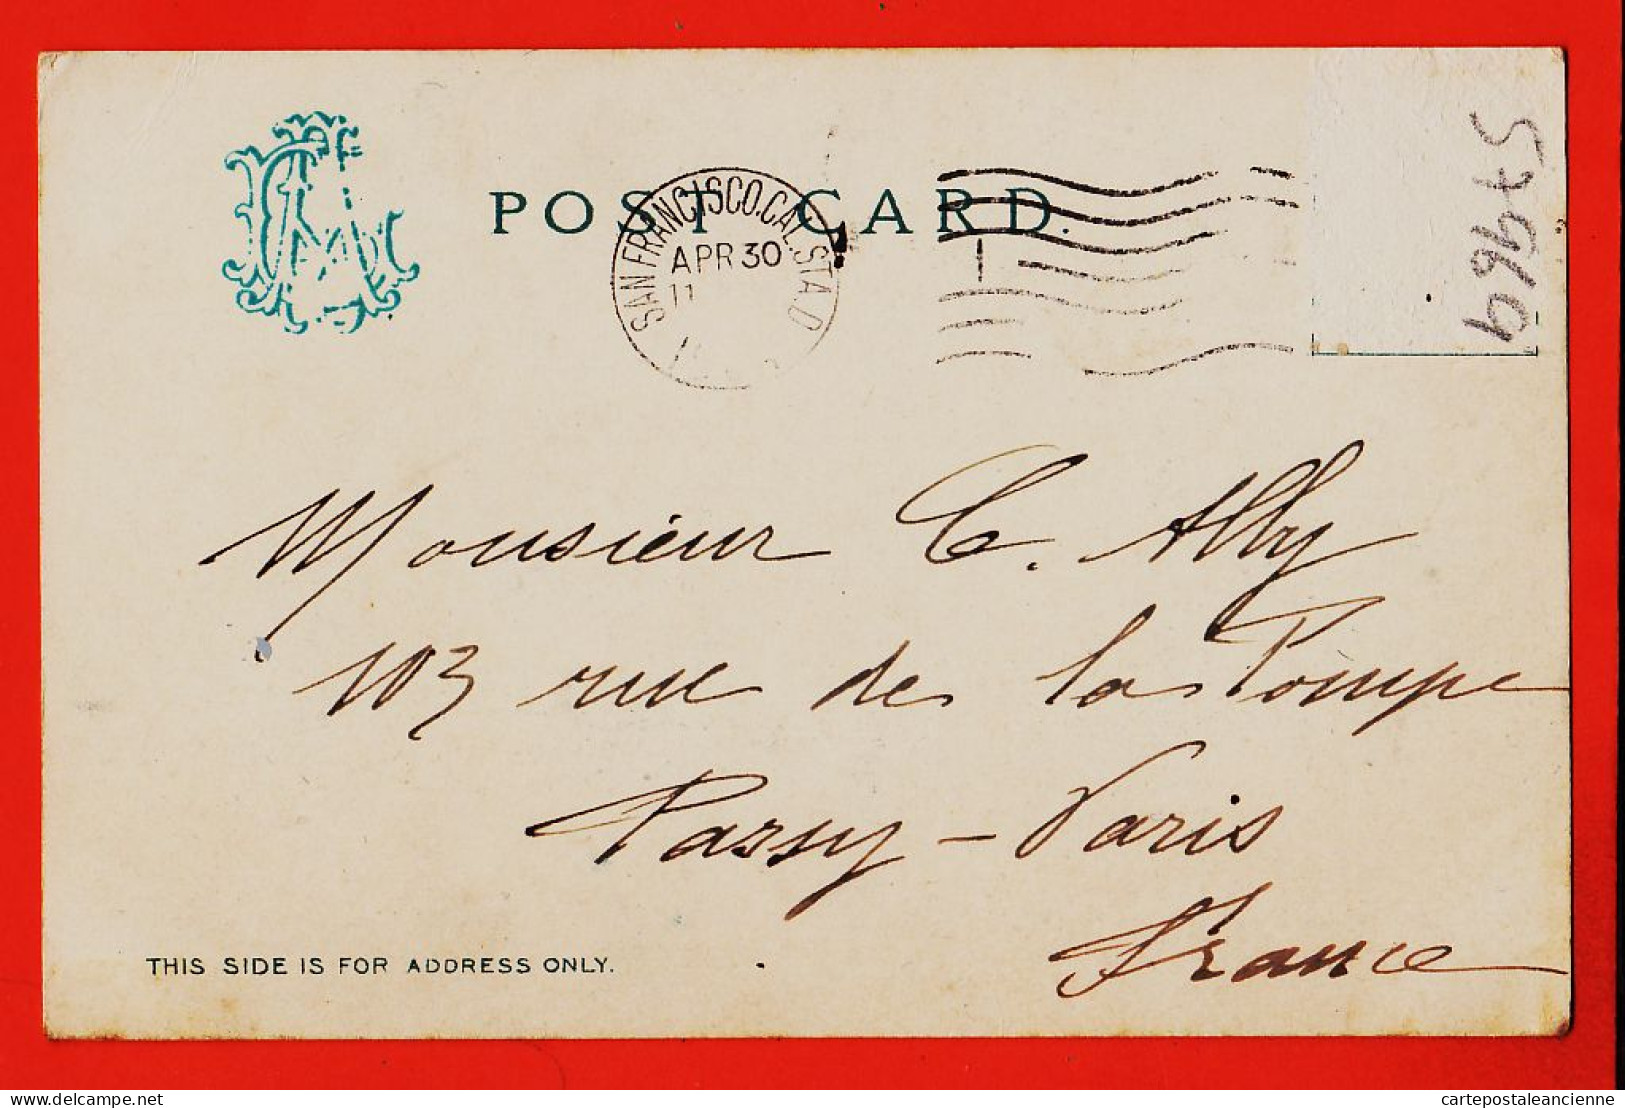 POST CARD.
SAN FRANCISCO.CAL. STA.D
APR 30
11
1
57969
Monsieur C. Alby
103 rue de la Pompe
Passy - Paris
France
THIS SIDE IS FOR ADDRESS ONLY.
delcampe.net
cartepostaleancienne